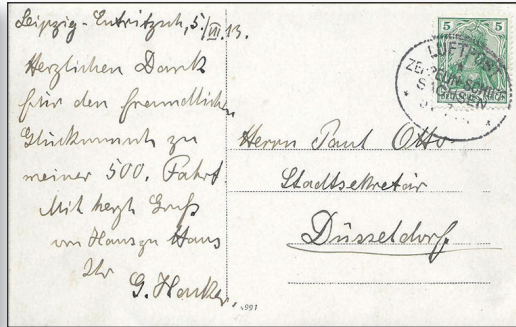 Leipzig-Eutritzsch, 5./VIII.13.
Herzlichen Dank
für den freundlichen
Glückwunsch zu
meiner 500. Fahrt.
Mit herzl Gruß
von Haus zu Haus
Ihr
G. Hacker.
5 5
LUFTPOST
SACHSEN
Herrn Paul Otto
Stadtsekretär
Düsseldorf.
991